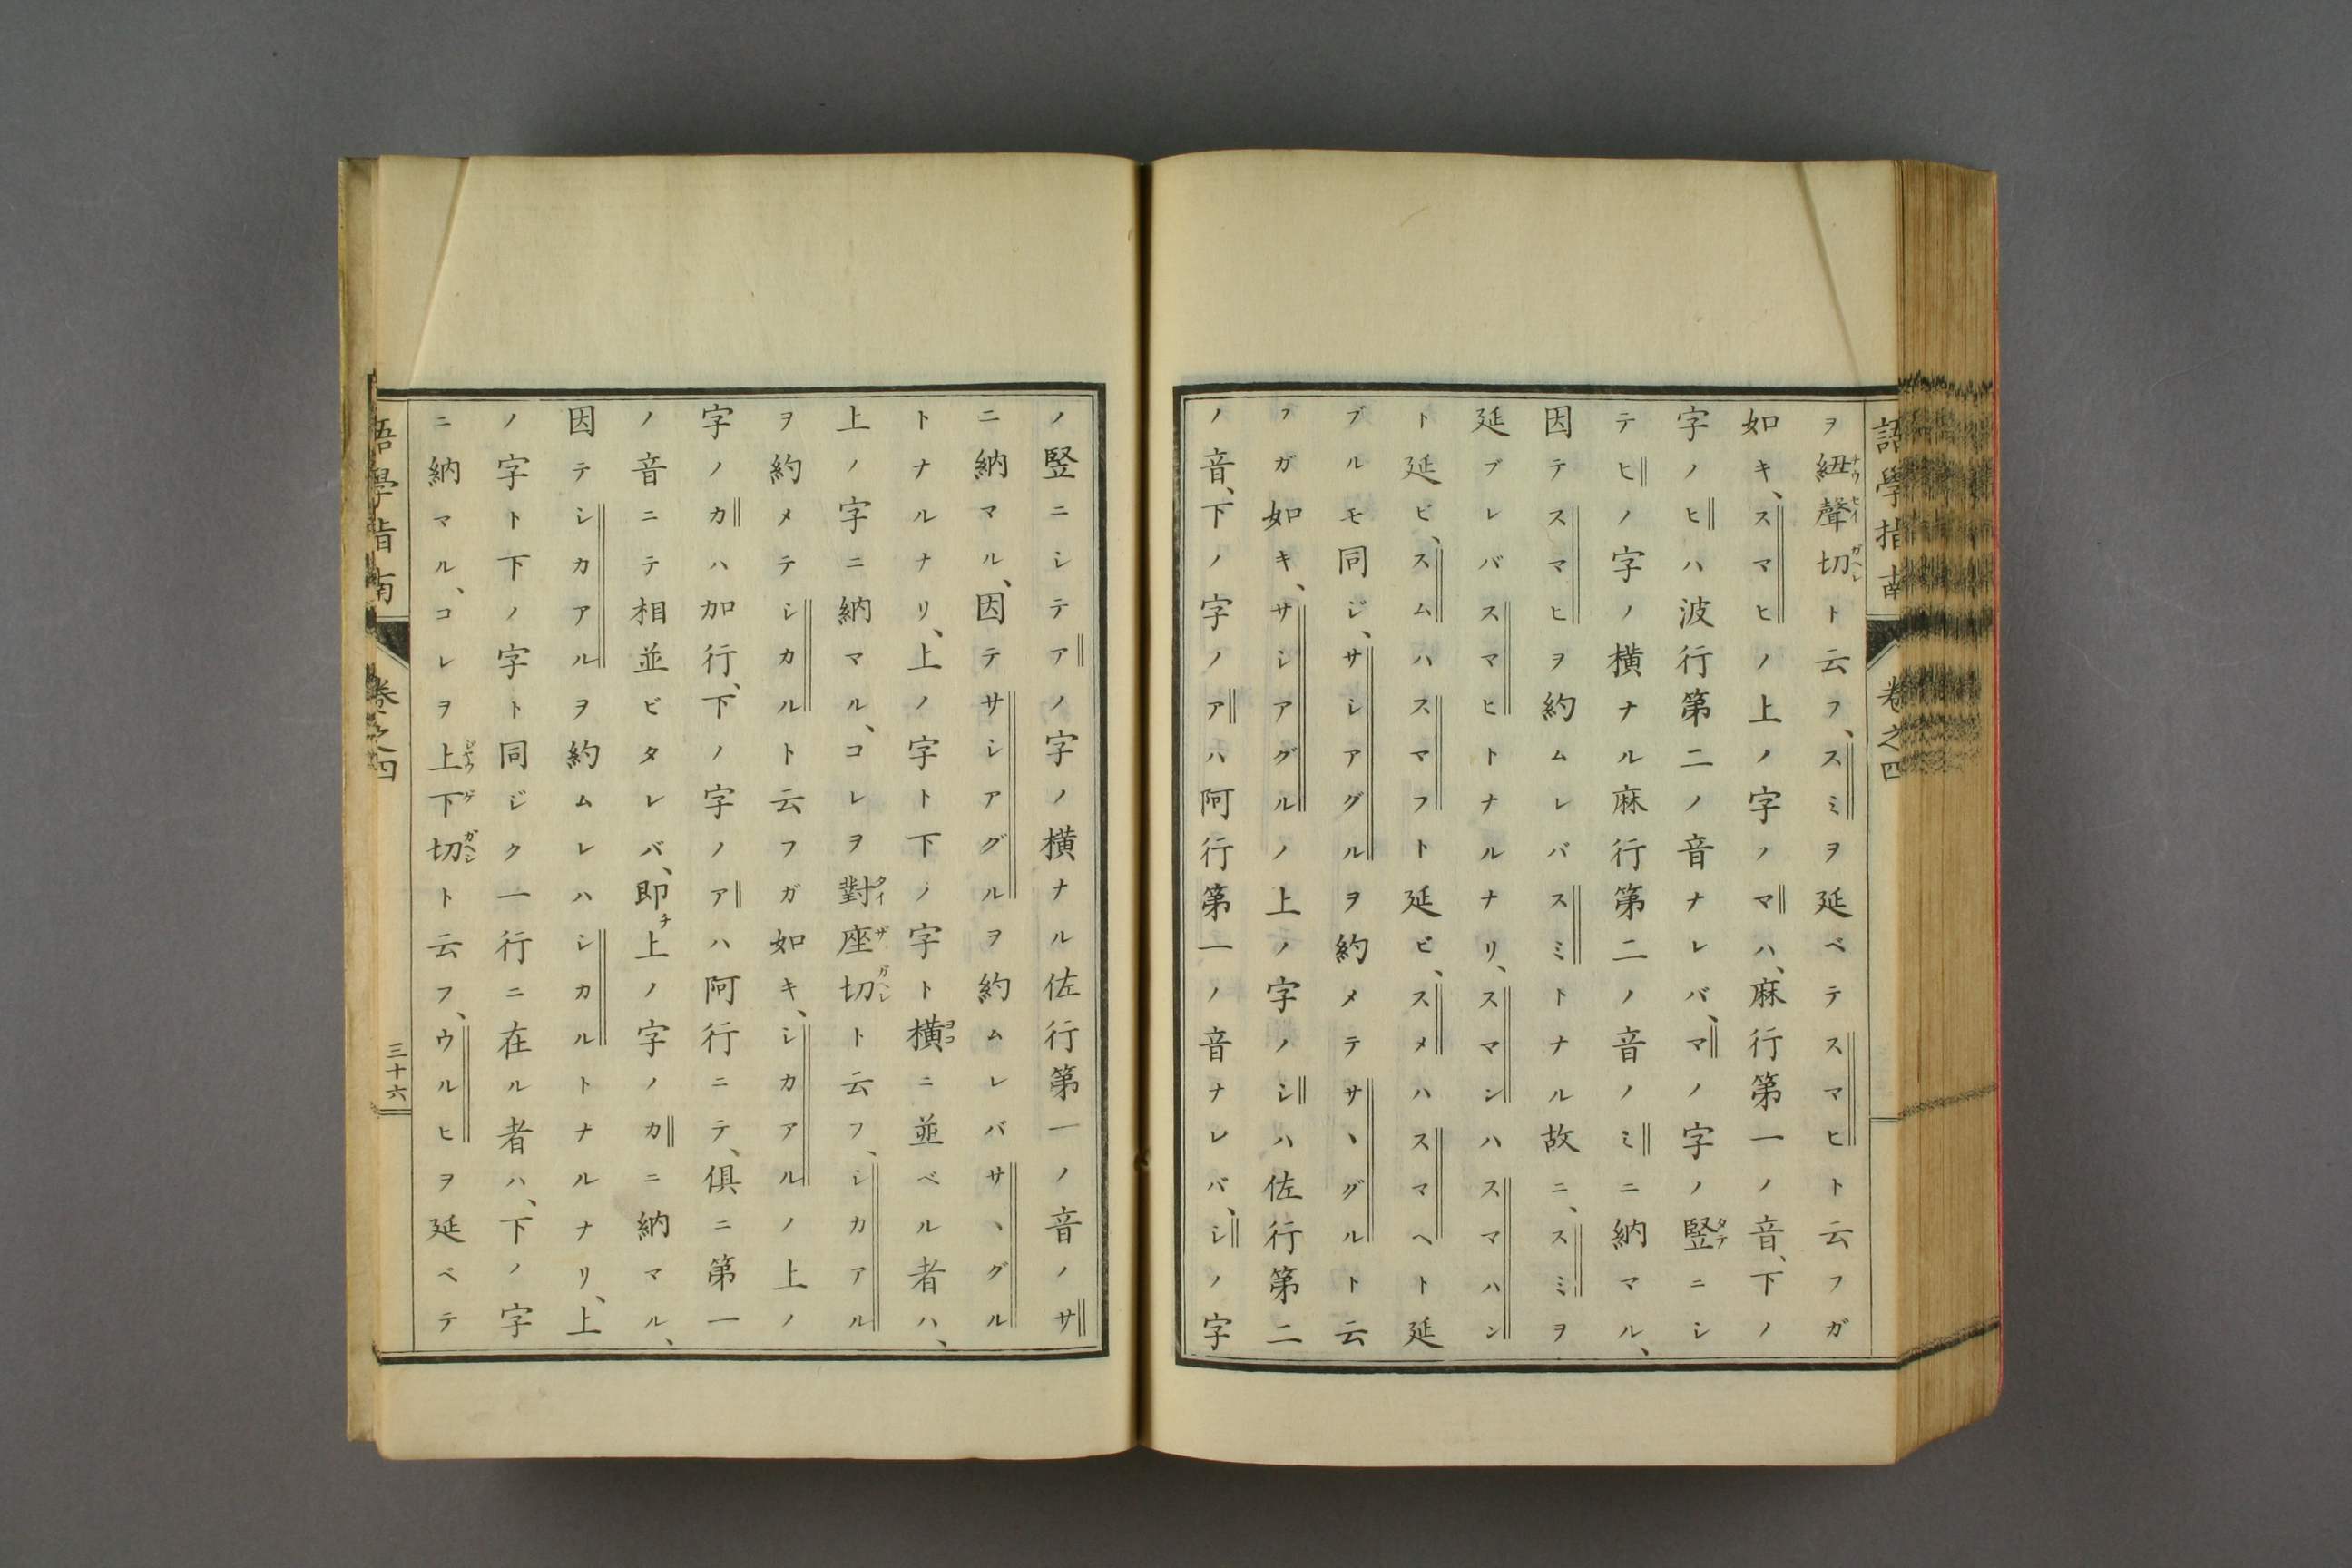 語學指南
卷之四
ヲ紐聲切ト云フ、スミヲ延ベテスマヒト云フガ
如キ、スマヒノ上ノ字ノマハ、麻行第一ノ音、下ノ
字ノヒハ波行第二ノ音ナレバ、マノ字ノ竪ニシ
テヒノ字ノ橫ナル麻行第二ノ音ノミニ納マル、
因テスマヒヲ約ムレバスミトナル故ニ、スミヲ
延ブレバスマヒトナルナリ、スマンハスマハン
ト延ビ、スムハスマフト延ビ、スメハスマヘト延
ブルモ同ジ、サシアグルヲ約メテサヽグルト云
フガ如キ、サシアグルノ上ノ字ノシハ佐行第二
ノ音、下ノ字ノアハ阿行第一ノ音ナレバ、シノ字
ノ竪ニシテアノ字ノ橫ナル佐行第一ノ音ノサ
ニ納マル、因テサシアグルヲ約ムレバサヽグル
トナルナリ、上ノ字ト下ノ字ト橫ニ並ベル者ハ、
上ノ字ニ納マル、コレヲ對座切ト云フ、シカアル
ヲ約メテシカルト云フガ如キ、シカアルノ上ノ
字ノカハ加行、下ノ字ノアハ阿行ニテ、俱ニ第一
ノ音ニテ相並ビタレバ、即チ上ノ字ノカニ納マル、
因テシカアルヲ約ムレハシカルトナルナリ、上
ノ字ト下ノ字ト同ジク一行ニ在ル者ハ、下ノ字
ニ納マル、コレヲ上下切ト云フ、ウルヒヲ延ベテ
語學指南
卷之四
三十六